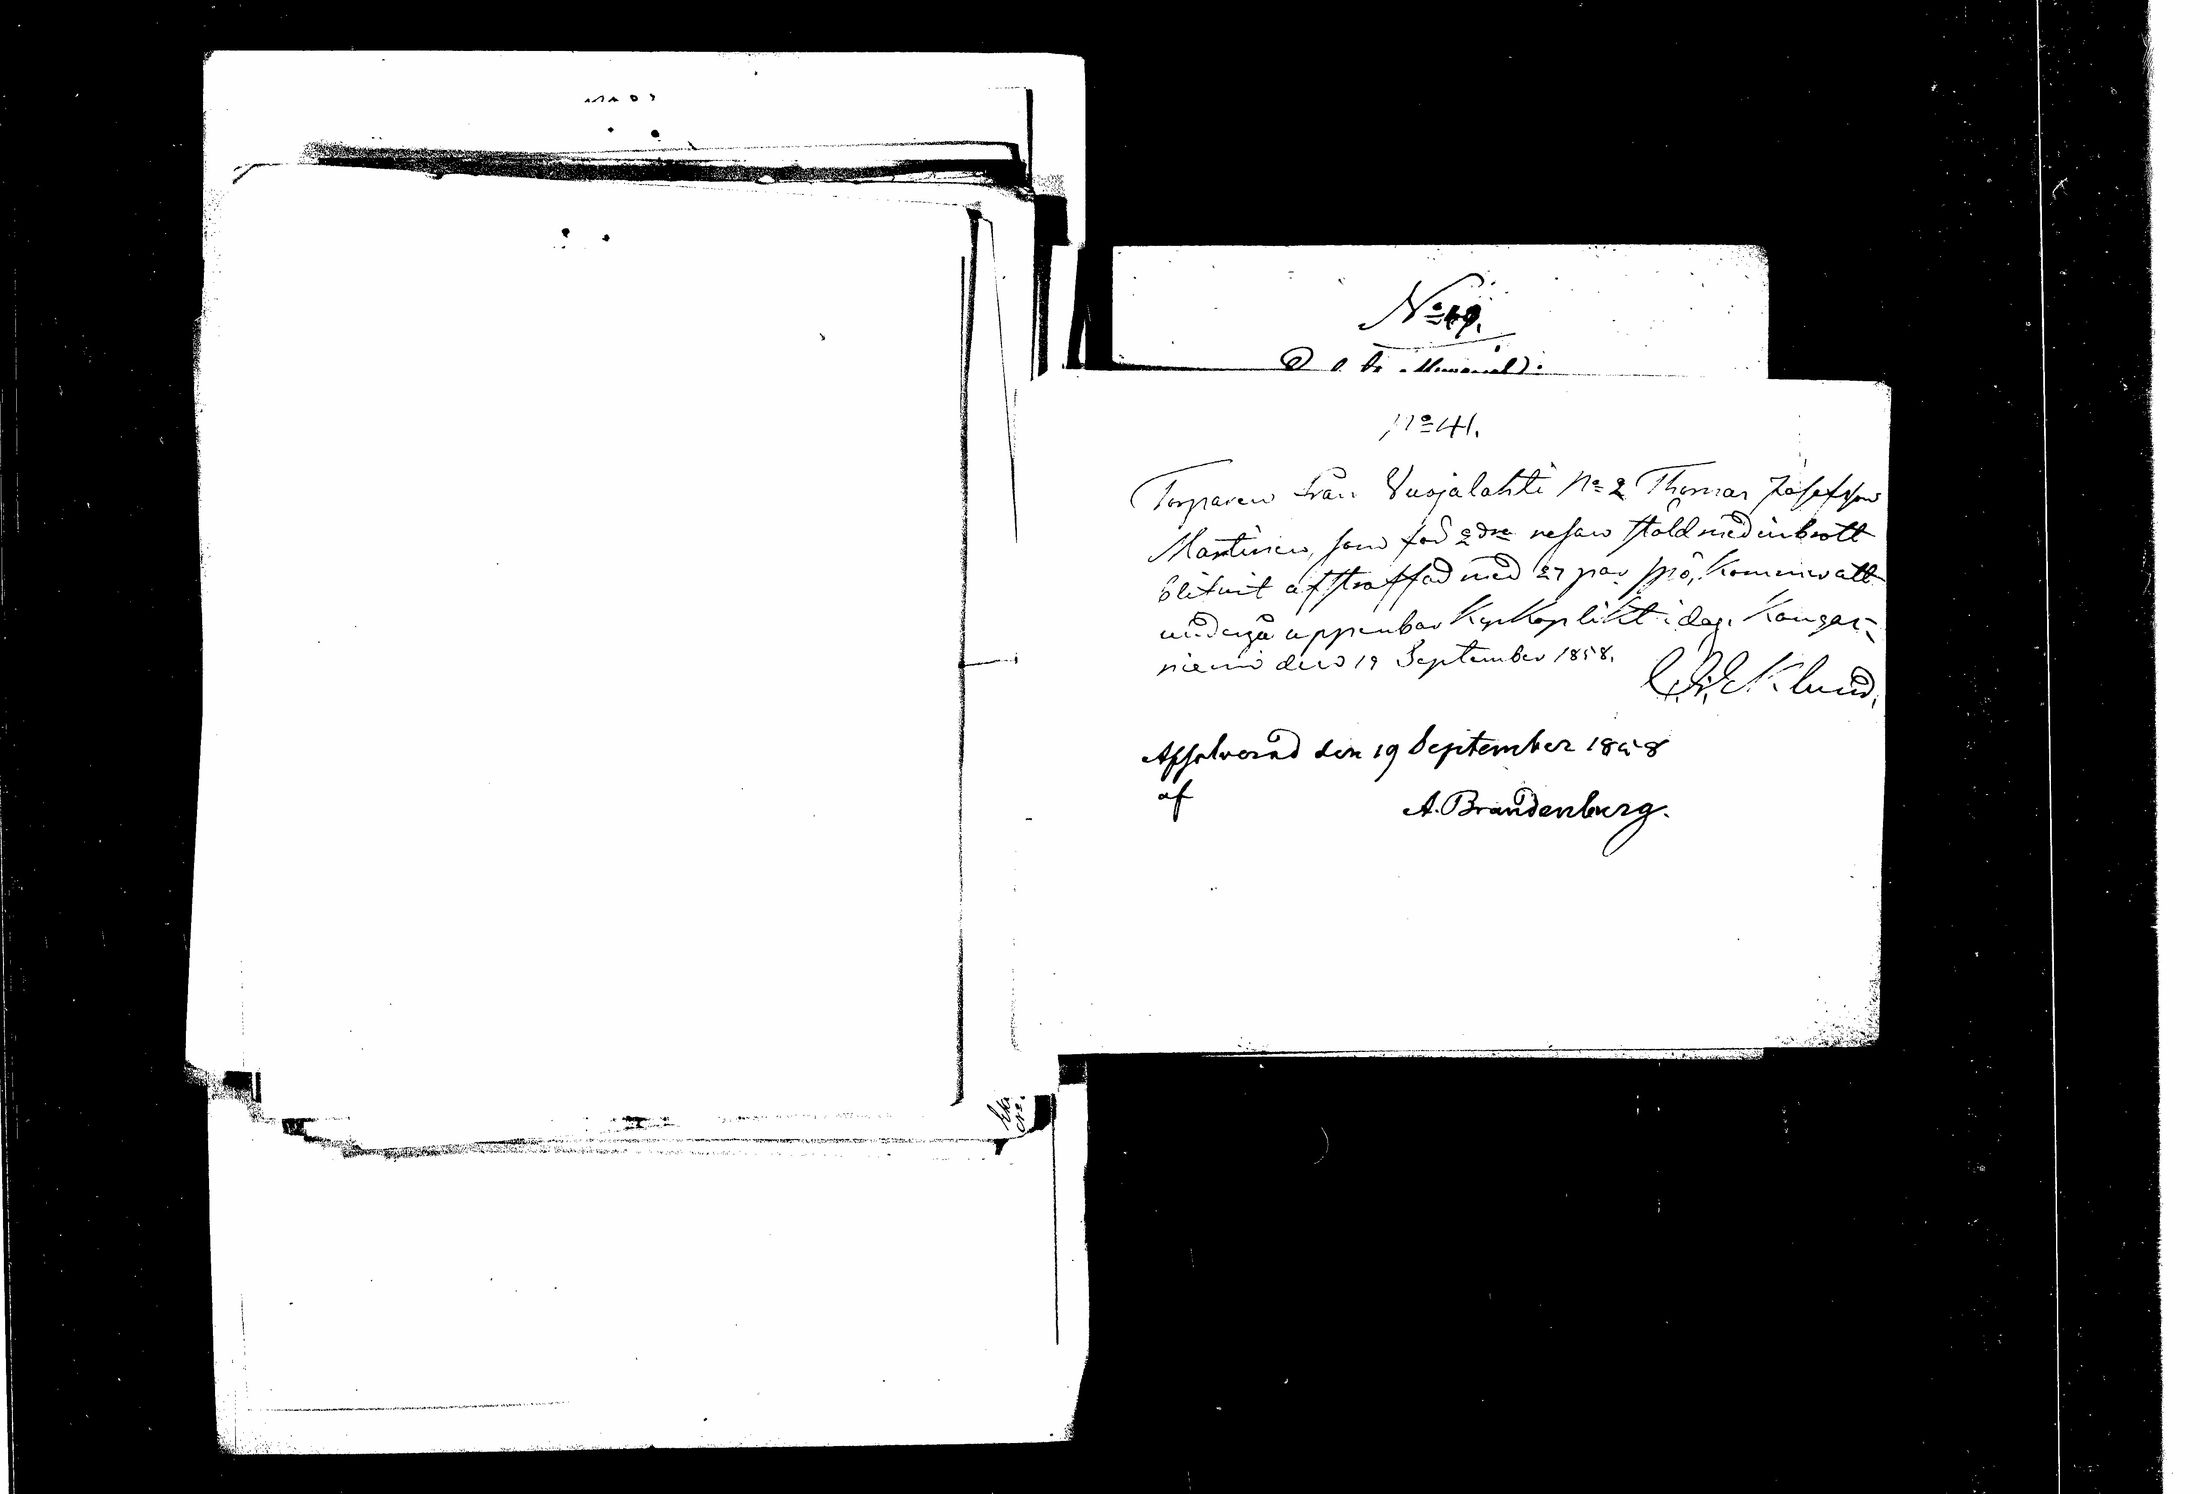 No 49.
No 41.
Torparen från Vuojalahti No 2 Thomas Josefsson
Martinen, som för 2dra resan stöld med inbrott
blifvit afstraffad med 27 par spö, kommer att
undergå uppenbar Kyrkoplikt i dag. Kangas-
niemi den 19 September 1858.
Eklund.
Afsolverad den 19 September 1858
af
A. Brandenburg.